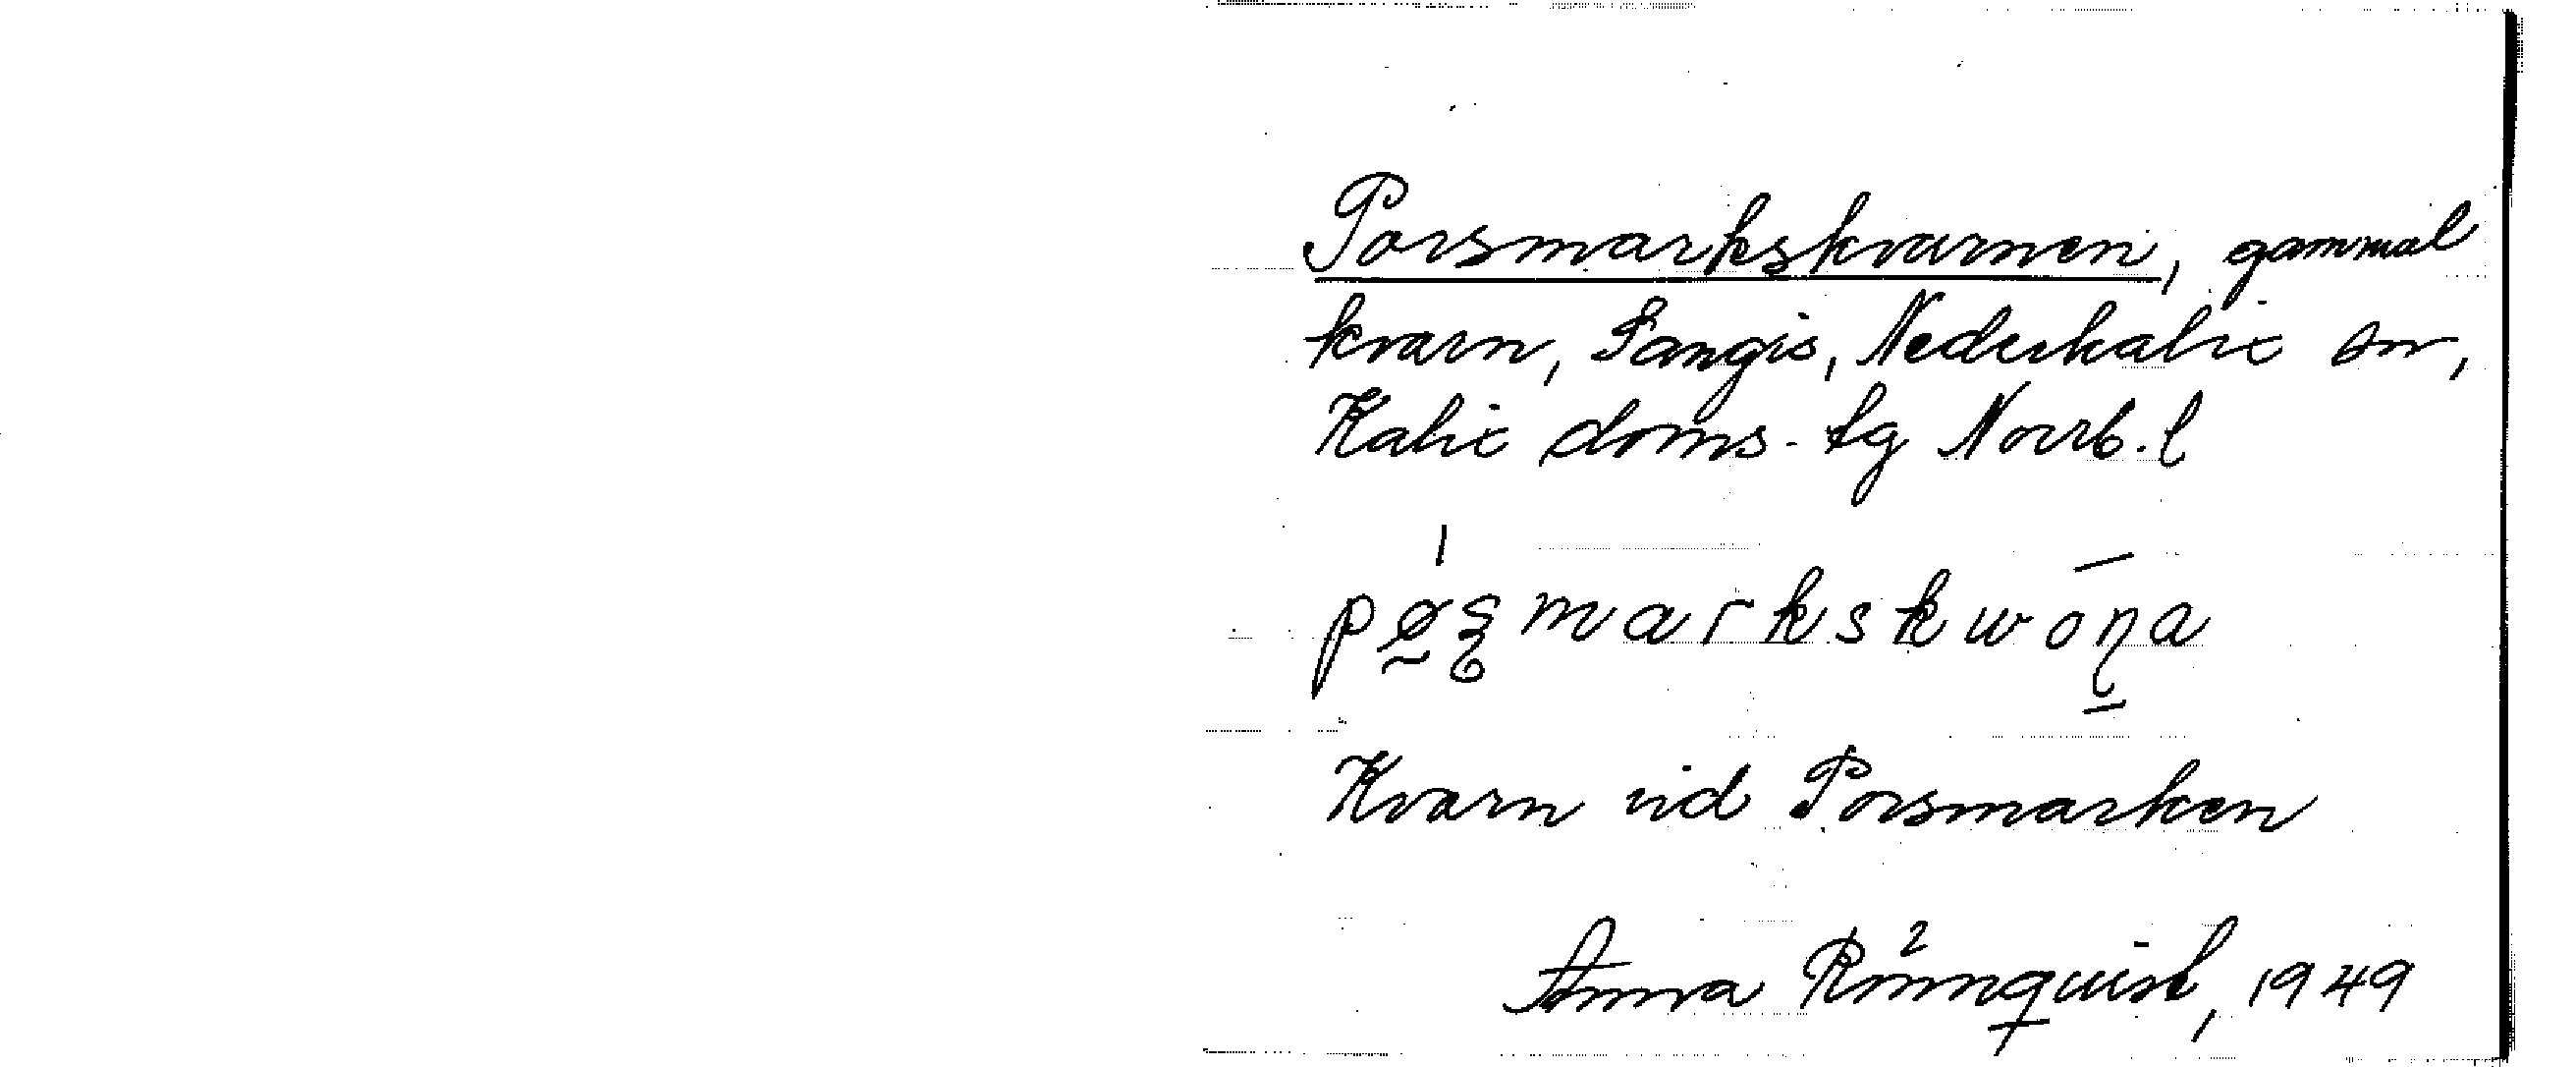 Porsmarkskvarnen, gammal
kvarn, Sangis, Nederkalix sn,
Kalix doms. tg Norrb. l
pø̰ʂmarkskwóɳa
Kvarn vid Porsmarken
Anna Rönnquist, 1949